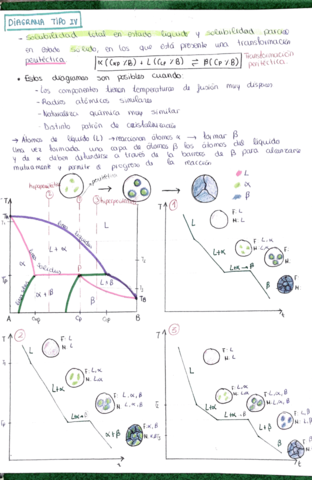 DIAGRAMA TIPO IV
- solubilidad total en estado líquido y solubilidad parcial
en estado sólido, en los que está presente una transformación
peritéctica
α (Cαp /B) + L (CLp /B) ⇌ β (Cp /B)
Transformación
peritéctica
• Estos diagramas son posibles cuando:
- Los componentes tienen temperaturas de fusión muy dispares
- Radios atómicos similares
- Naturaleza química muy similar
- Distinto patrón de cristalización
→ Átomos de líquido (L) → reaccionan átomos α → formar β
Una vez formada una capa de átomos β los átomos del líquido
y de α deben difundirse a través de la barrera de β para alcanzarse
mutuamente y permitir el progreso de la reacción
L
α
β
TA
L
L+α
α
P
L+β
α+β
β
TB
A
B
1
T
L
F: L
M: L
L+α
F: L, α
L+α→β
β
t
2
T
L
F: L
M: L
L+α
F: L, α
M: L, α
F: L, α, β
M: L, α, β
α+β
F: α, β
3
T
L
F: L
M: L
L+α
F: L, α
M: L, α
L+α→β
F: L, α, β
M: L, α, β
F: L, β
M: L, β
β
F: β
t